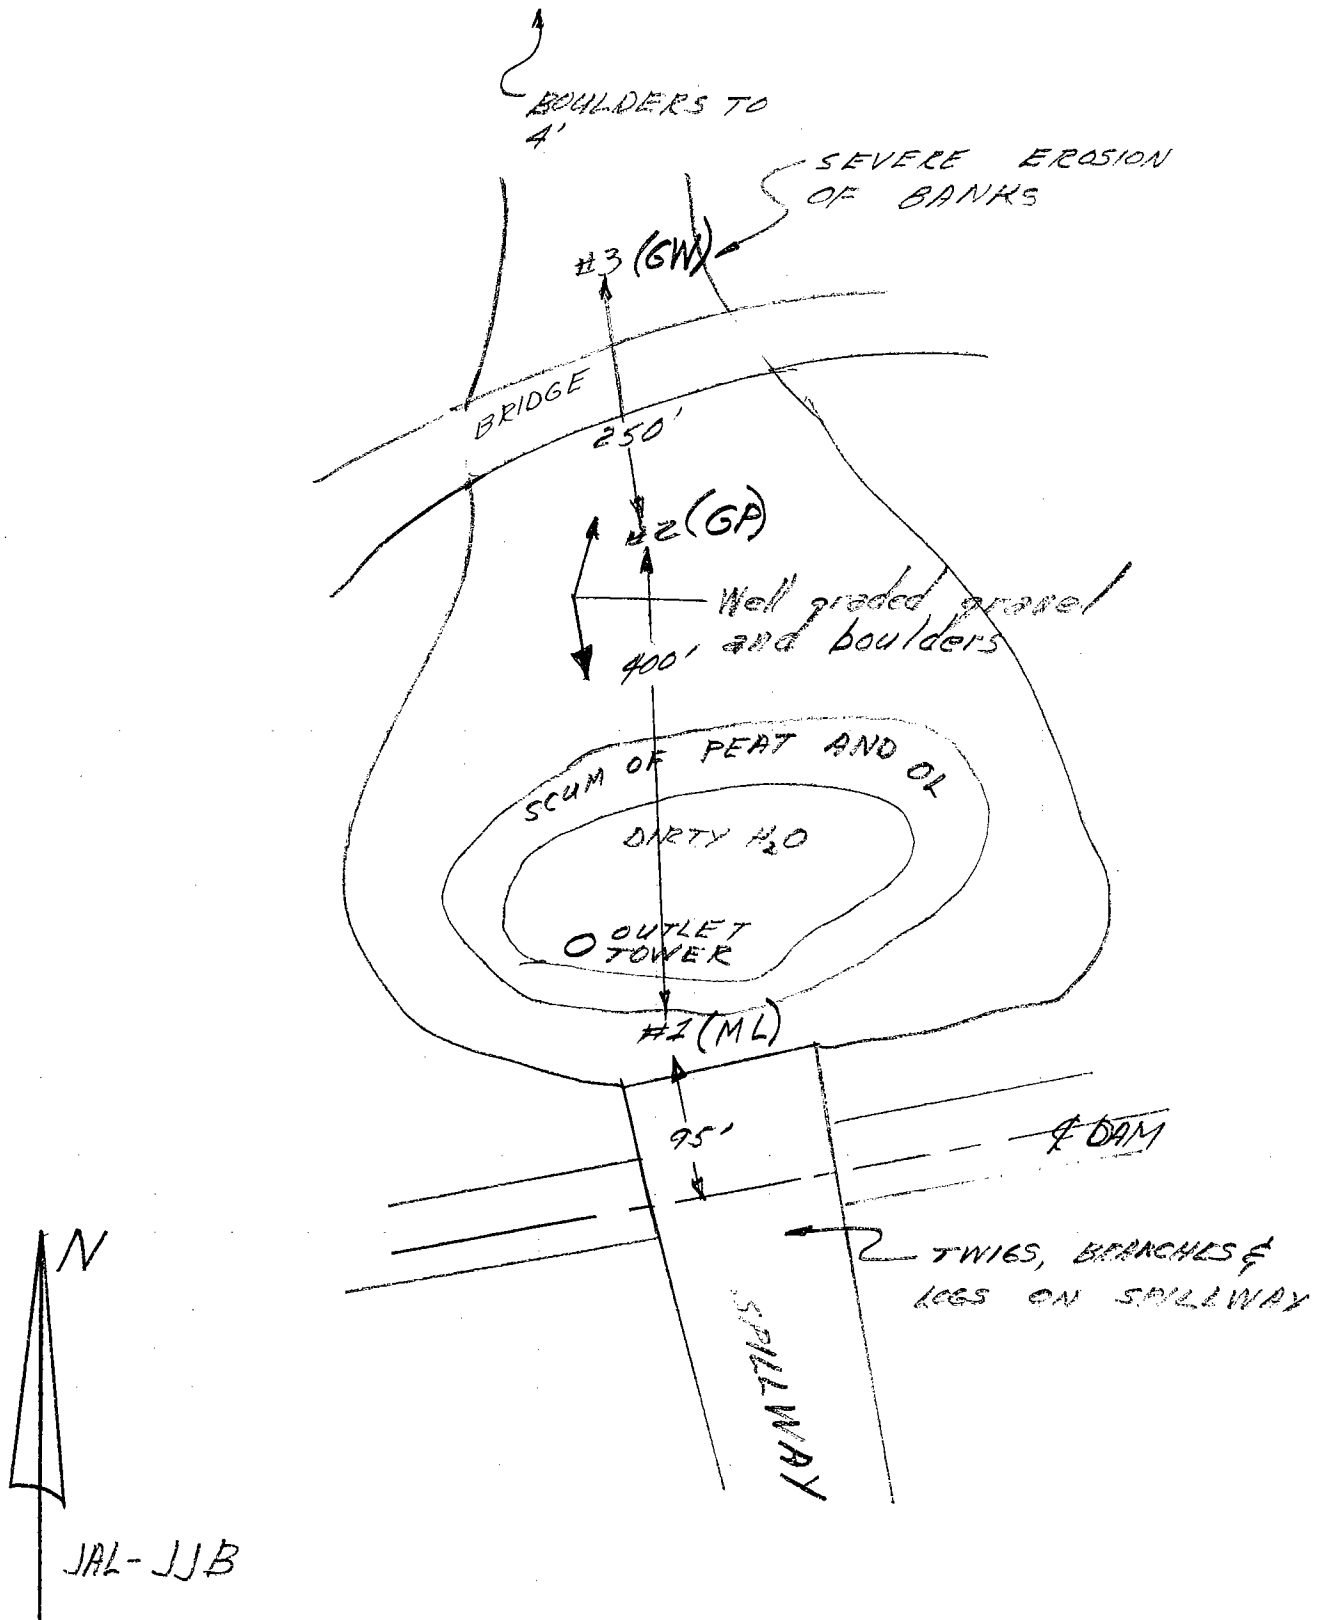 BOULDERS TO
4'
SEVERE EROSION
OF BANKS
#3 (GW)
BRIDGE
250'
#2 (GP)
Well graded gravel
and boulders
400'
SCUM OF PEAT AND OL
DIRTY H₂O
OUTLET
TOWER
#1 (ML)
95'
℄ DAM
N
TWIGS, BRANCHES &
LOGS ON SPILLWAY
SPILLWAY
JAL-JJB